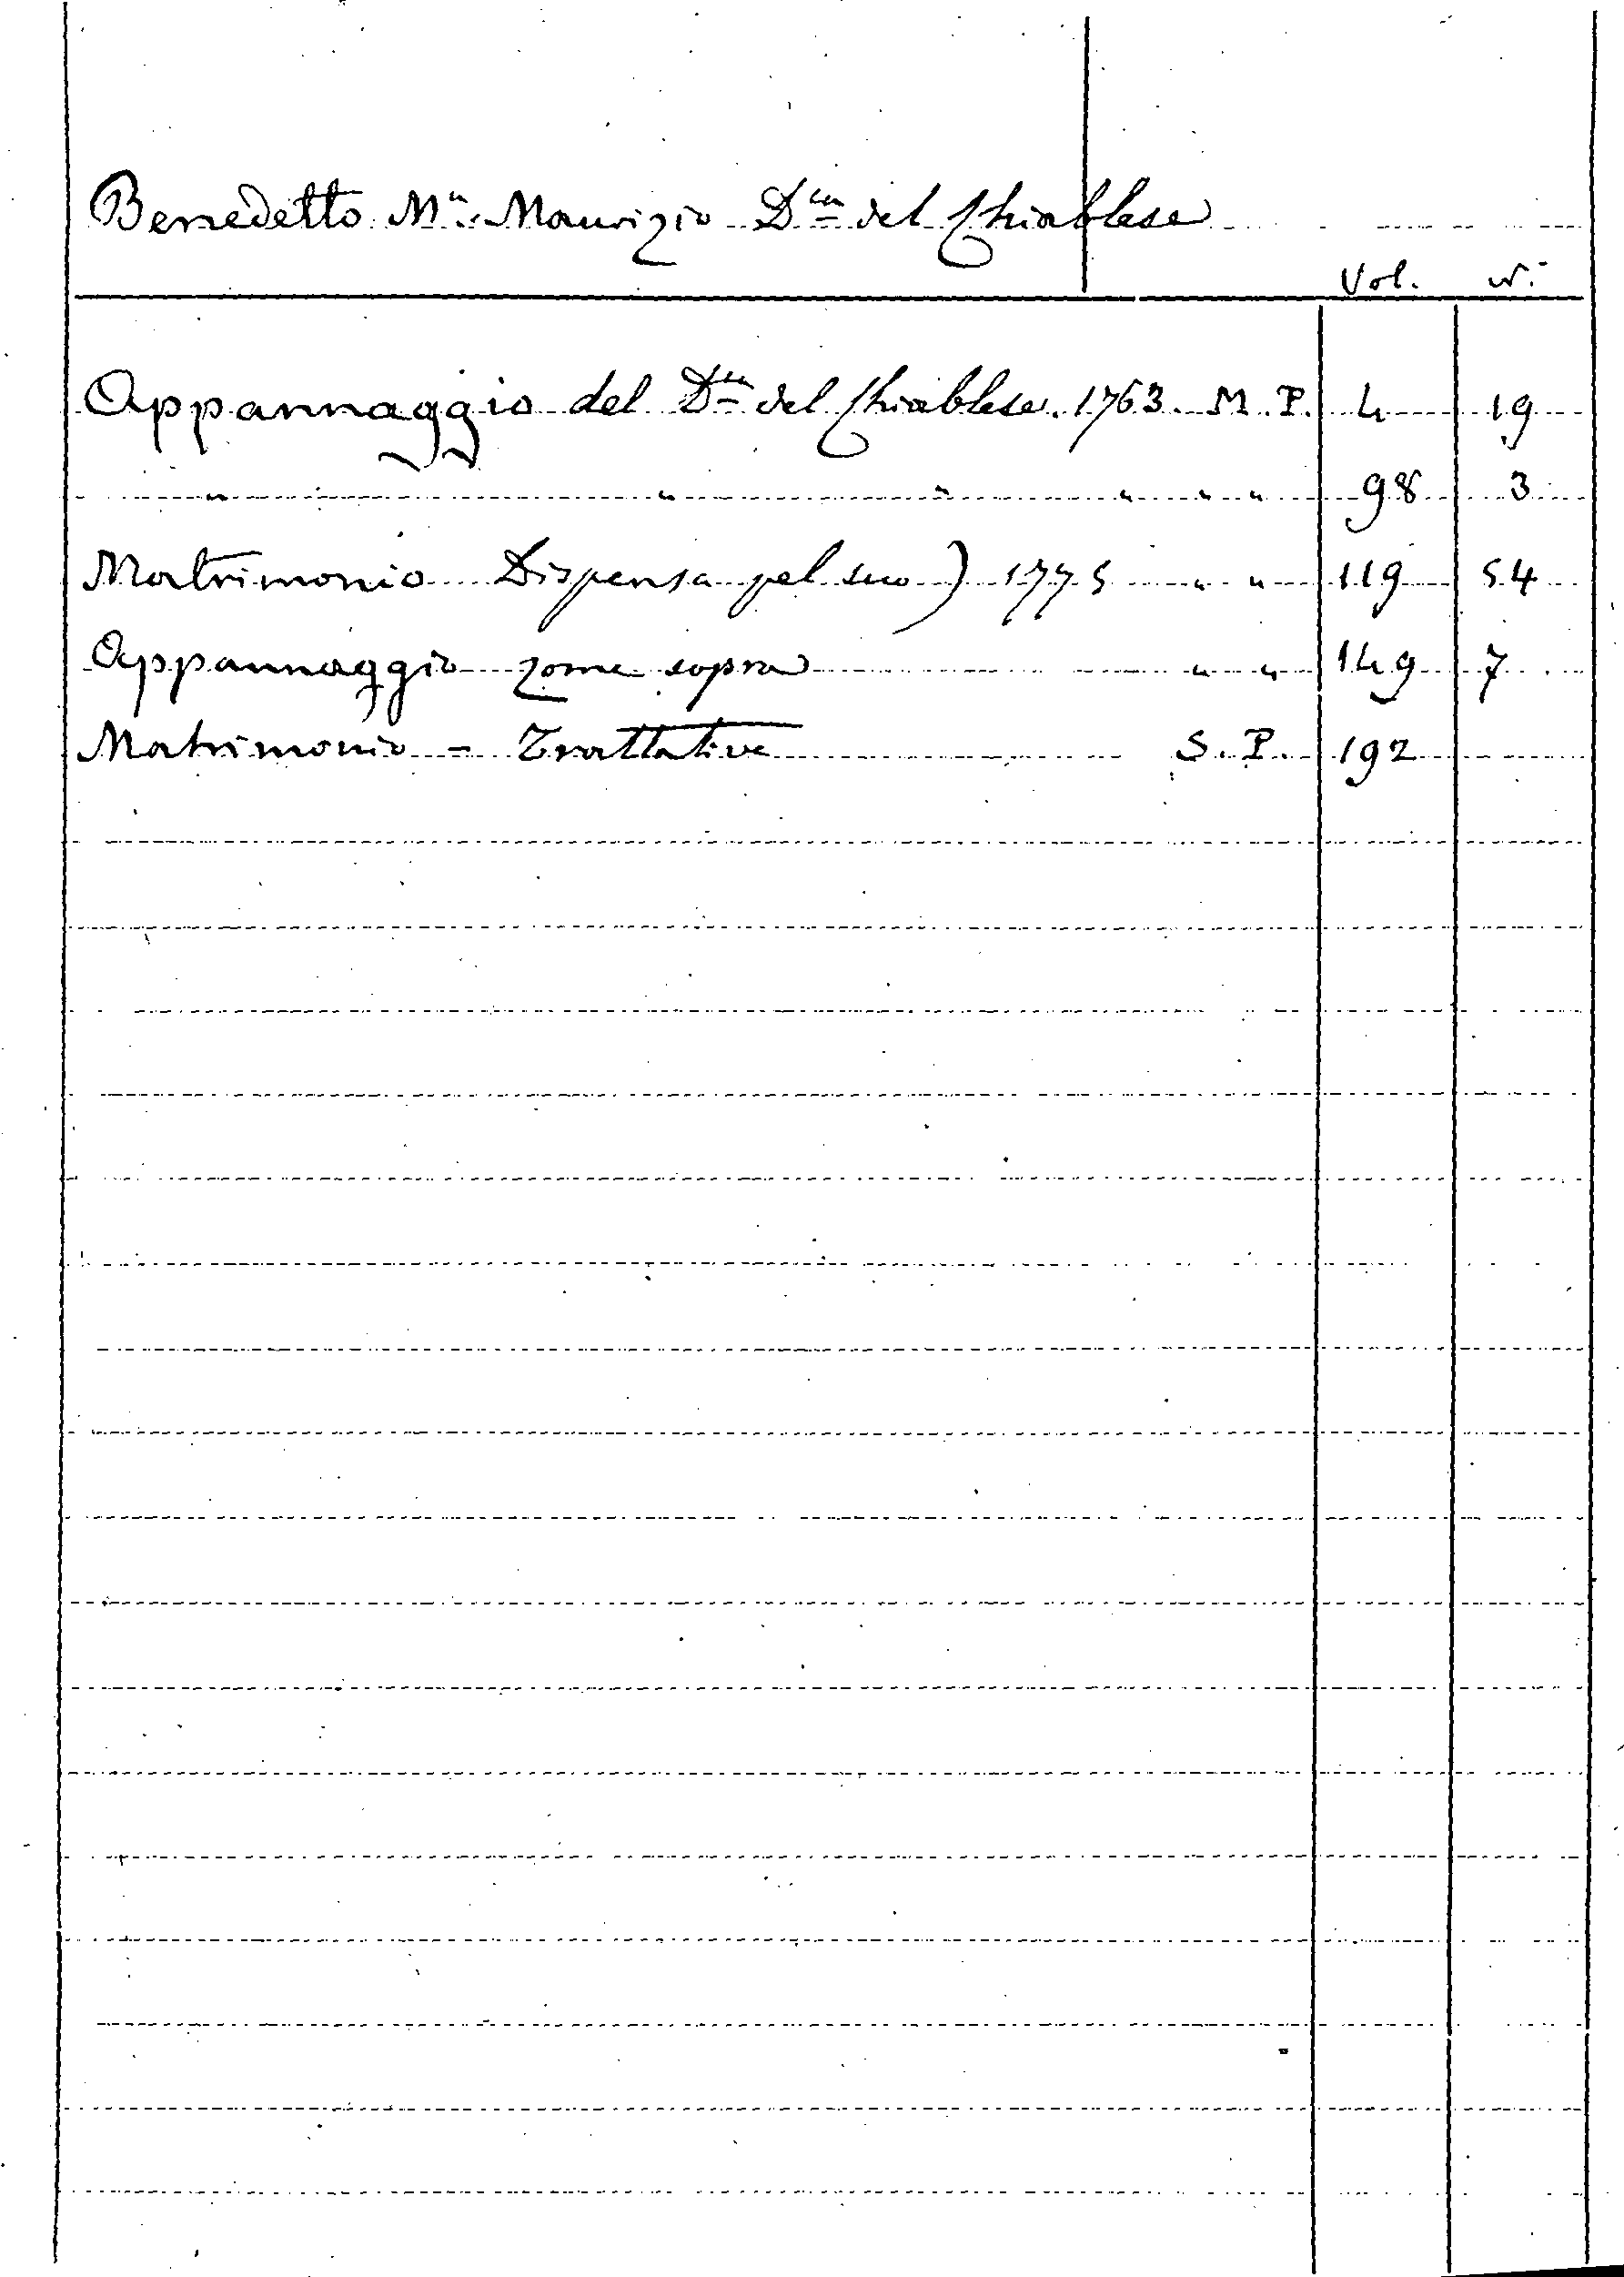 Benedetto Mª. Maurizio Dᶜᵃ del Chiablese
Vol. N.
Appannaggio del Dᶜᵃ del Chiablese. 1763. M. P. 4 19
" " " " " " 98 3
Matrimonio Dispensa pel suo) 1775 " " 119 54
Appannaggio come sopra " " 149 7
Matrimonio - Trattative S. P. 192